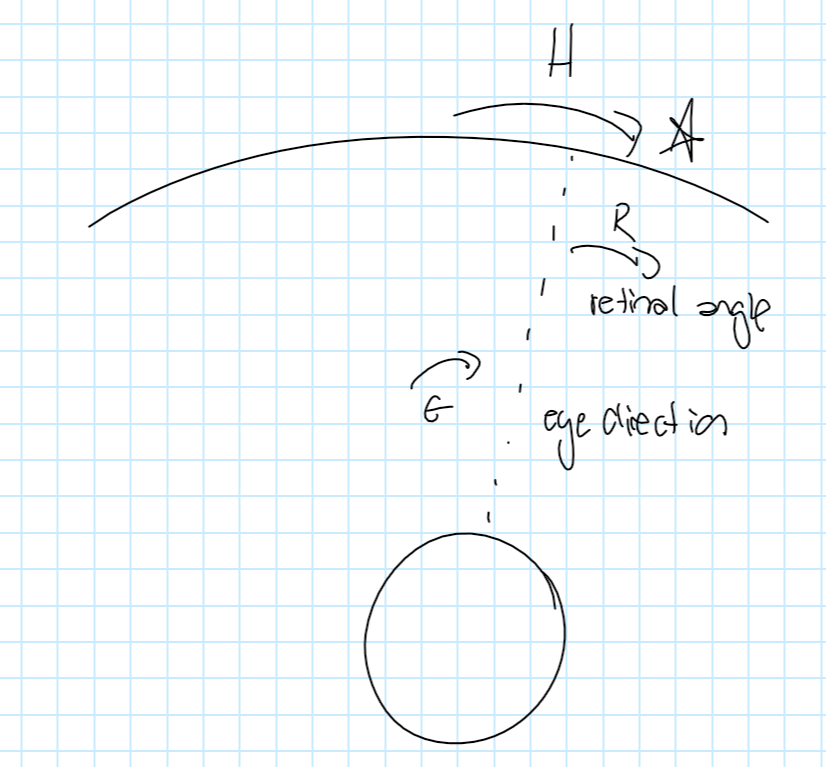 H
R
retinal angle
E
eye direction